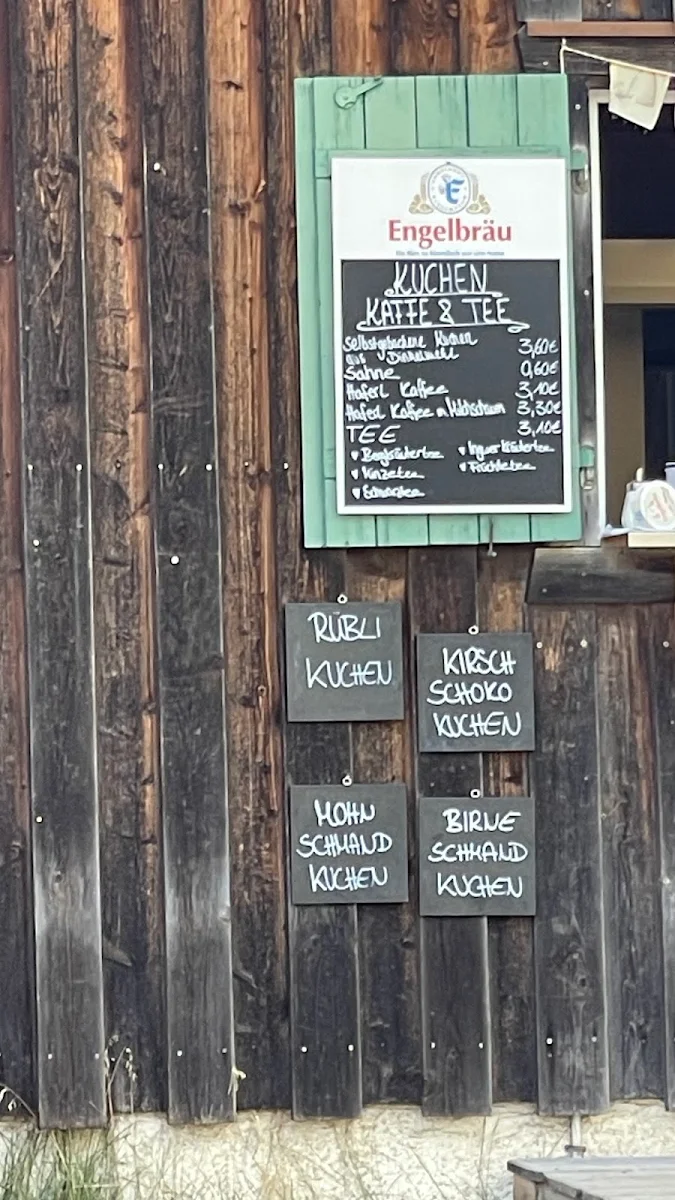 Engelbräu
KUCHEN
KAFFE & TEE
Selbstgebackene Kuchen
aus Dinkelmehl 3,60€
Sahne 0,60€
Haferl Kaffee 3,10€
Haferl Kaffee m. Milchschaum 3,30€
TEE 3,10€
Bergkräutertee
Ingwerkräutertee
Minzetee
Früchtetee
RÜBLI
KUCHEN
KIRSCH
SCHOKO
KUCHEN
MOHN
SCHMAND
KUCHEN
BIRNE
SCHMAND
KUCHEN